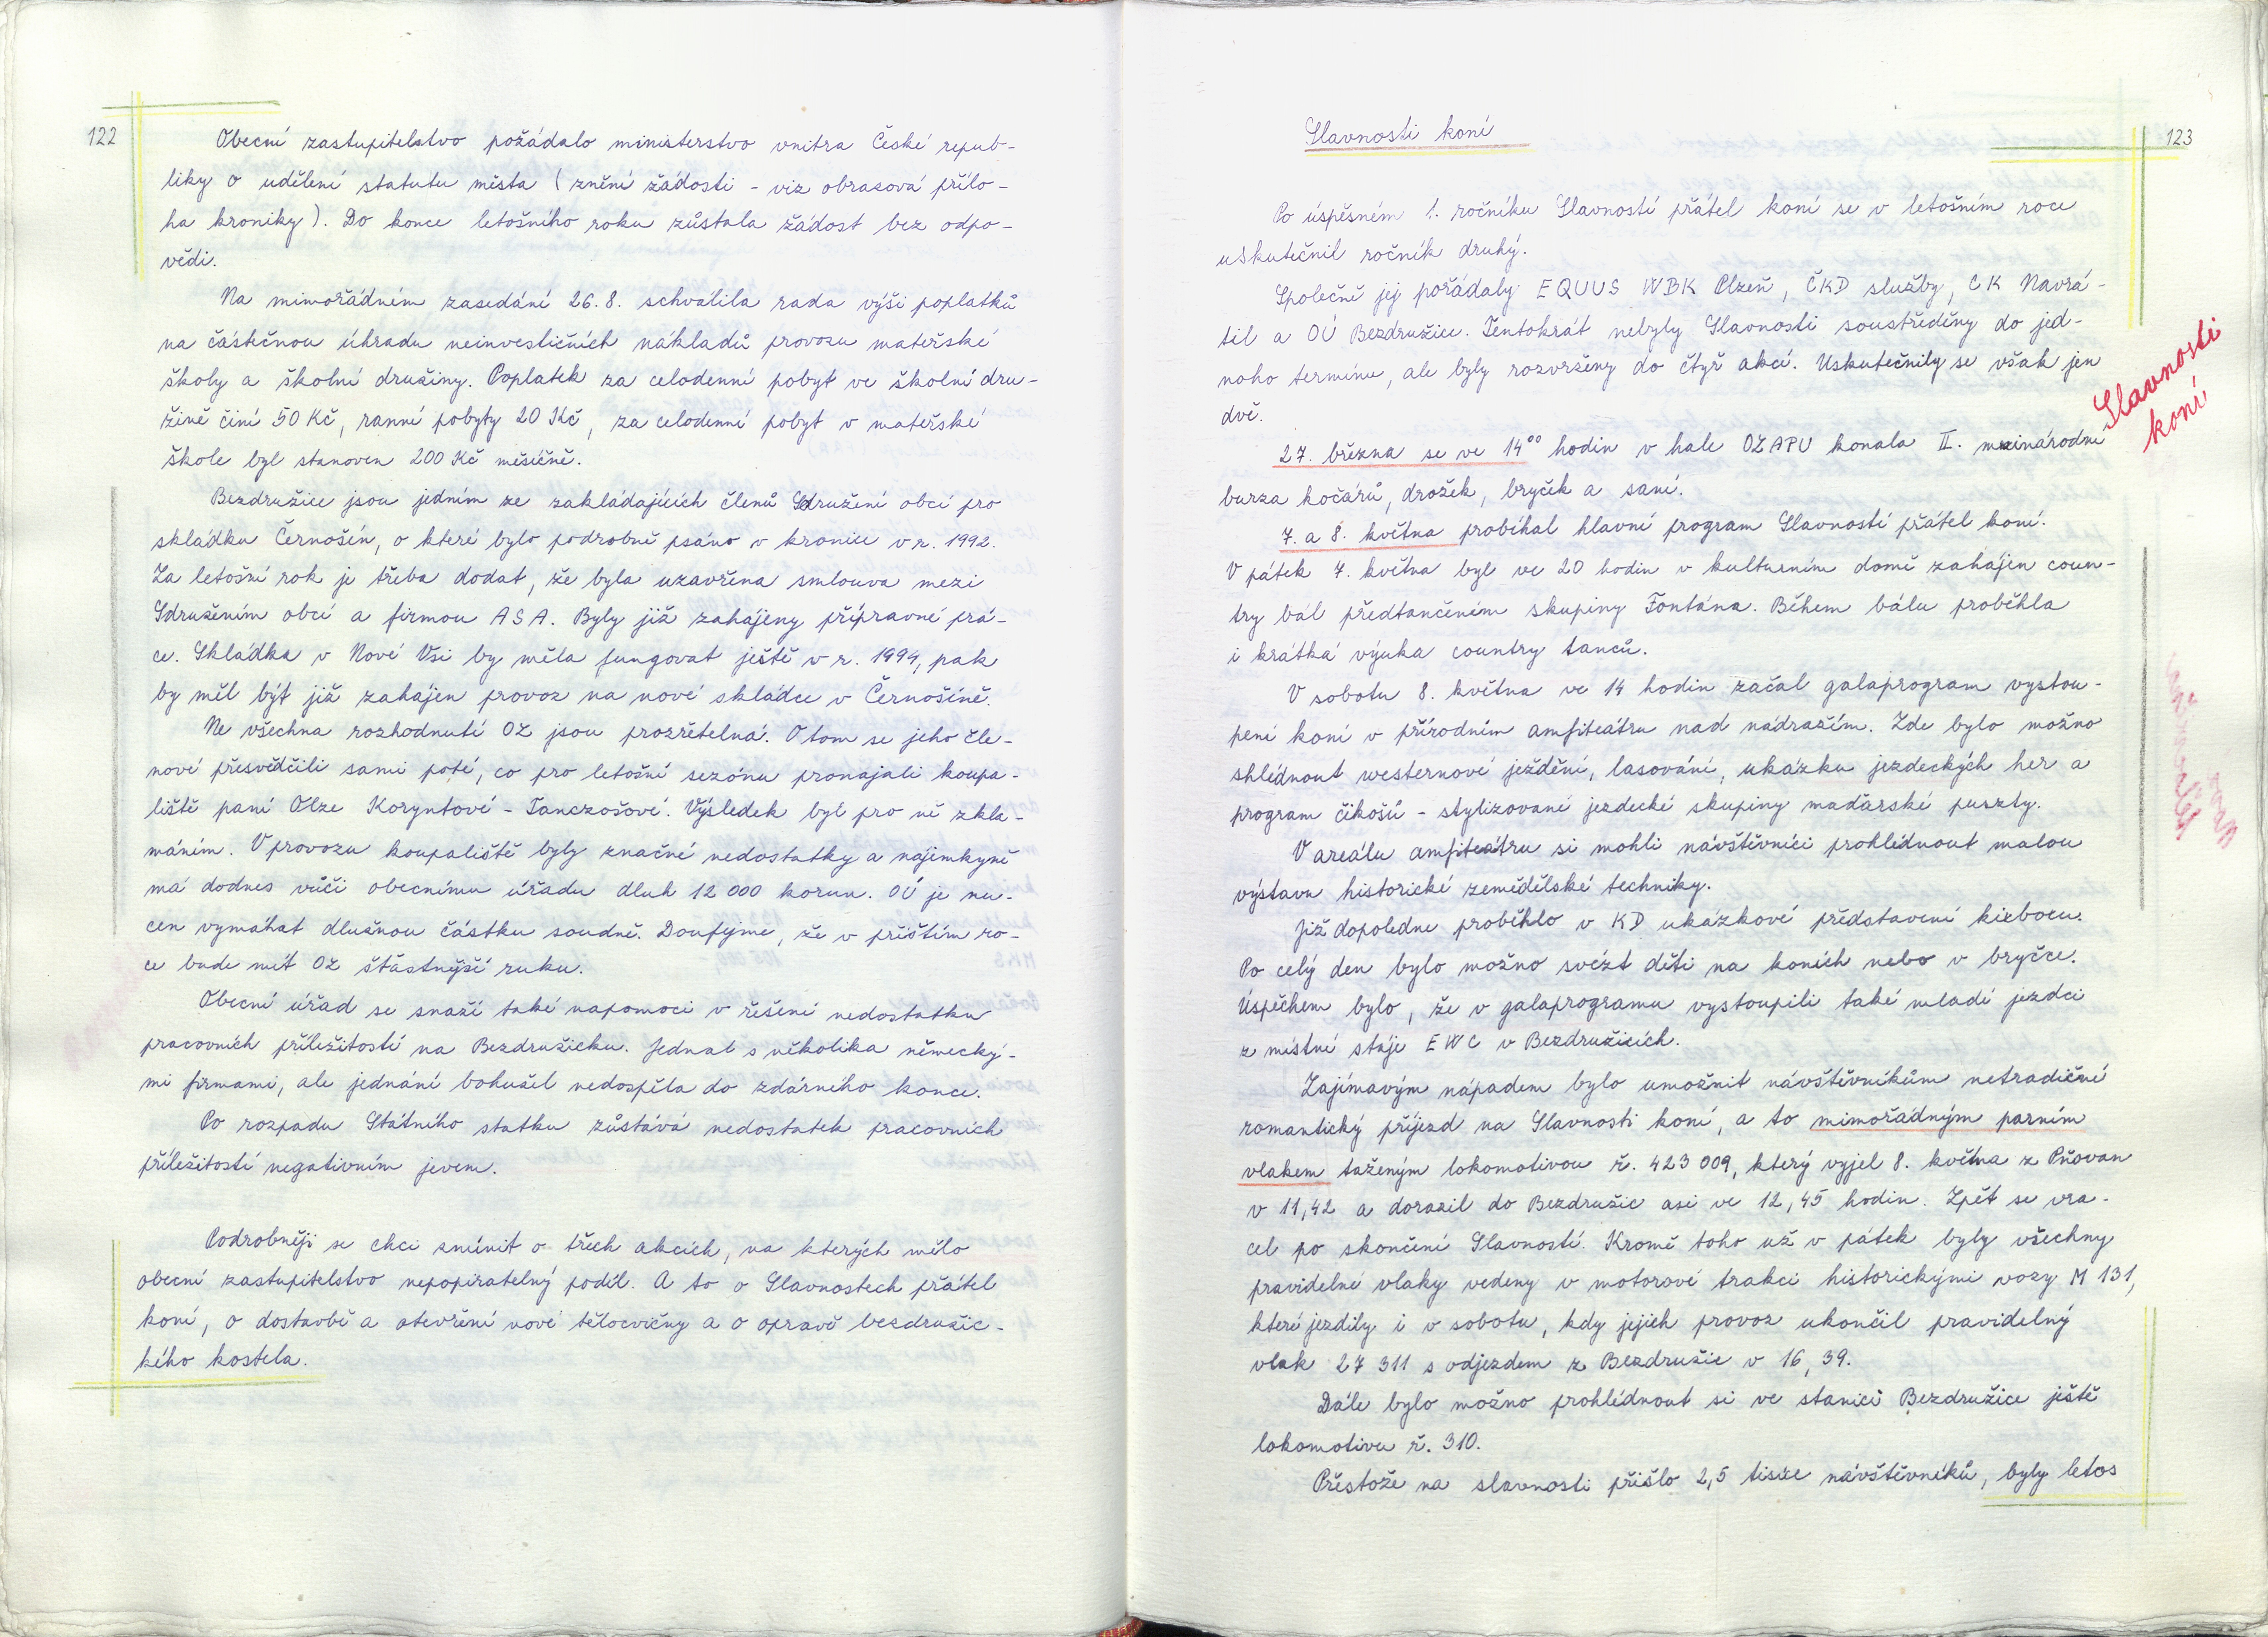 122
Obecní zastupitelstvo požádalo ministerstvo vnitra České repub-
liky o udělení statutu města (znění žádosti - viz obrazová přílo-
ha kroniky). Do konce letošního roku zůstala žádost bez odpo-
vědi.
Na mimořádném zasedání 26.8. schválila rada výši poplatků
na částečnou úhradu neinvestičních nákladů provozu mateřské
školy a školní družiny. Poplatek za celodenní pobyt ve školní dru-
žině činí 50 Kč, ranní pobyty 20 Kč, za celodenní pobyt v mateřské
škole byl stanoven 200 Kč měsíčně.
Bezdružice jsou jedním ze zakládajících členů Sdružení obcí pro
skládku Černošín, o které bylo podrobně psáno v kronice v r. 1992.
Za letošní rok je třeba dodat, že byla uzavřena smlouva mezi
Sdružením obcí a firmou ASA. Byly již zahájeny přípravné prá-
ce. Skládka v Nové Vsi by měla fungovat ještě v r. 1994, pak
by měl být již zahájen provoz na nové skládce v Černošíně.
Ne všechna rozhodnutí OZ jsou prozřetelná. O tom se jeho čle-
nové přesvědčili sami poté, co pro letošní sezónu pronajali koupa-
liště paní Olze Koryntové - Tanczošové. Výsledek byl pro ně zkla-
máním. V provozu koupaliště byly značné nedostatky a nájemkyně
má dodnes vůči obecnímu úřadu dluh 12 000 korun. OÚ je nu-
cen vymáhat dlužnou částku soudně. Doufejme, že v příštím ro-
ce bude mít OZ šťastnější ruku.
Obecní úřad se snaží také napomoci v řešení nedostatku
pracovních příležitostí na Bezdružicku. Jednal s několika německý-
mi firmami, ale jednání bohužel nedospěla do zdárného konce.
Po rozpadu Státního statku zůstává nedostatek pracovních
příležitostí negativním jevem.
Podrobněji se chci zmínit o třech akcích, na kterých mělo
obecní zastupitelstvo nepopiratelný podíl. A to o Slavnostech přátel
koní, o dostavbě a otevření nové tělocvičny a o opravě bezdružic-
kého kostela.
123
Slavnosti koní
Po úspěsném 1. ročníku Slavností přátel koní se v letošním roce
uskutečnil ročník druhý.
Společně jej pořádaly EQUUS WBK Plzeň, ČKD služby, CK Navrá-
til a OÚ Bezdružice. Tentokrát nebyly Slavnosti soustředěny do jed-
noho termínu, ale byly rozvrženy do čtyř akcí. Uskutečnily se však jen
dvě.
Slavnosti
koní
27. března se ve 14⁰⁰ hodin v hale OZAPU konala II. mezinárodní
burza kočárů, drožek, bryček a saní.
7. a 8. května probíhal hlavní program Slavností přátel koní.
V pátek 7. května byl ve 20 hodin v kulturním domě zahájen coun-
try bál předtančením skupiny Fontána. Během bálu proběhla
i krátká výuka country tanců.
V sobotu 8. května ve 14 hodin začal galaprogram vystou-
pení koní v přírodním amfiteátru nad nádražím. Zde bylo možno
shlédnout westernové ježdění, lasování, ukázku jezdeckých her a
program čikošů - stylizované jezdecké skupiny maďarské puszty.
V areálu amfiteátru si mohli návštěvníci prohlédnout malou
výstavu historické zemědělské techniky.
Již dopoledne proběhlo v KD ukázkové představení kixboxu.
Po celý den bylo možno svézt děti na koních nebo v bryčce.
Úspěchem bylo, že v galaprogramu vystoupili také mladí jezdci
z místní stáje EWC v Bezdružicích.
Zajímavým nápadem bylo umožnit návštěvníkům netradiční
romantický příjezd na Slavnosti koní, a to mimořádným parním
vlakem taženým lokomotivou ř. 423 009, který vyjel 8. května z Pňovan
v 11,42 a dorazil do Bezdružic asi ve 12,45 hodin. Zpět se vra-
cel po skončení Slavností. Kromě toho už v pátek byly všechny
pravidelné vlaky vedeny v motorové trakci historickými vozy M 131,
které jezdily i v sobotu, kdy jejich provoz ukončil pravidelný
vlak 27 311 s odjezdem z Bezdružic v 16,39.
Dále bylo možno prohlédnout si ve stanici Bezdružice ještě
lokomotivu ř. 310.
Přestože na slavnosti přišlo 2,5 tisíce návštěvníků, byly letos